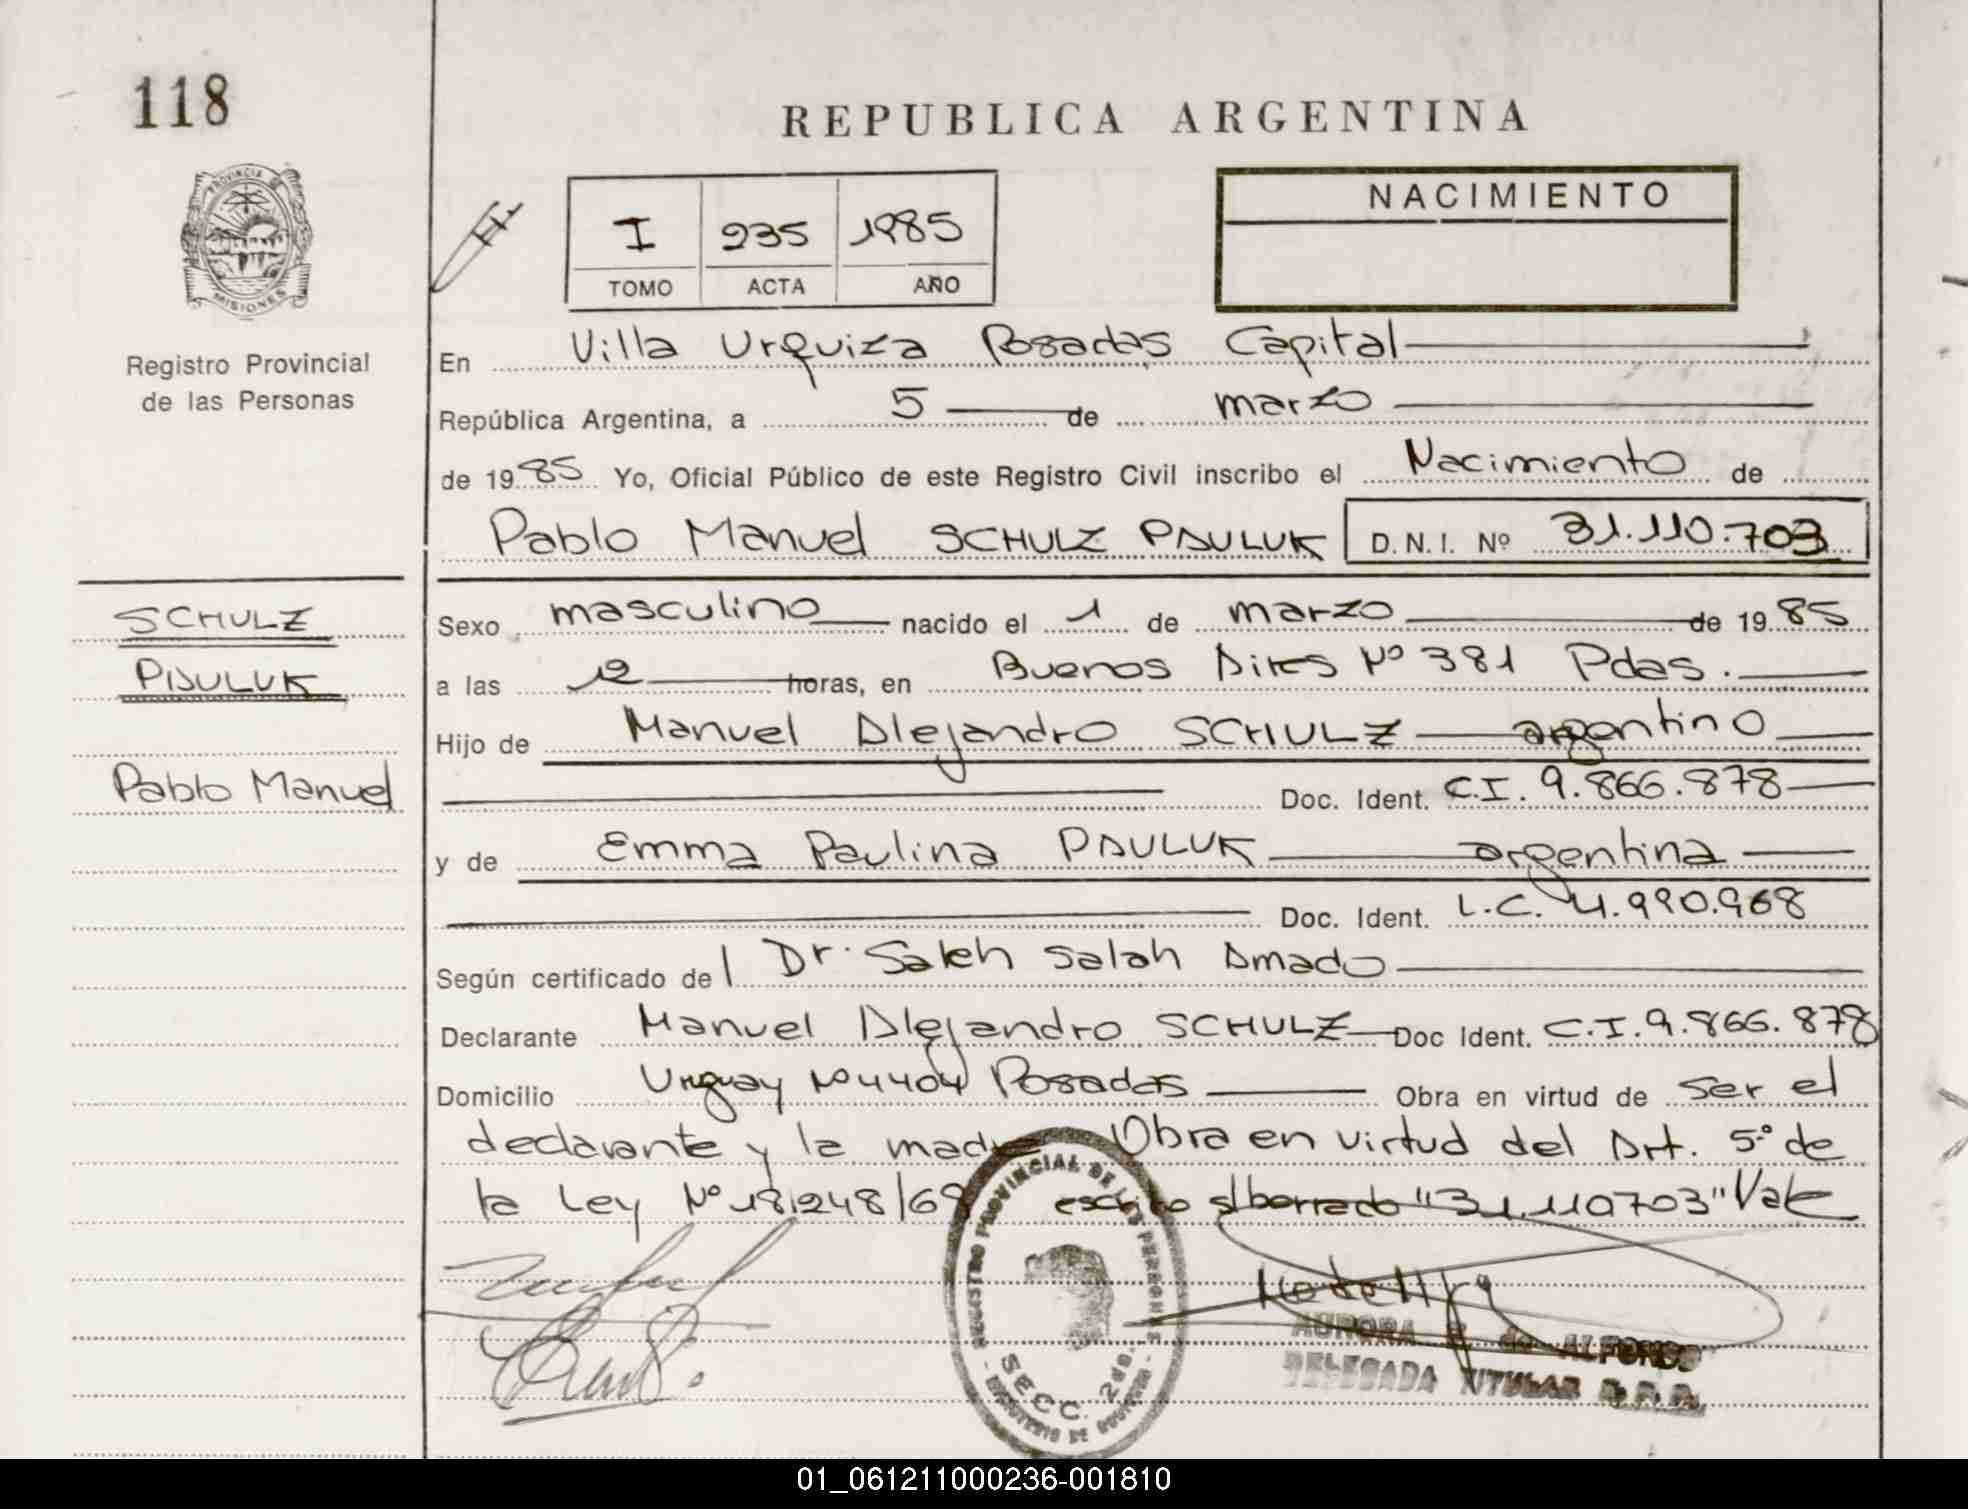 118
REPUBLICA ARGENTINA
PROVINCIA DE
MISIONES
I 235 1985
TOMO ACTA AÑO
NACIMIENTO
Registro Provincial
de las Personas
En Villa Urquiza Posadas Capital
República Argentina, a 5 de marzo
de 1985 Yo, Oficial Público de este Registro Civil inscribo el Nacimiento de
Pablo Manuel SCHULZ PAULUK D.N.I. Nº 31.110.703
SCHULZ
PAULUK
Pablo Manuel
Sexo masculino nacido el 1 de marzo de 1985
a las 12 horas, en Buenos Aires Nº 381 Pdas.
Hijo de Manuel Alejandro SCHULZ argentino
Doc. Ident. C.I. 9.866.878
y de Emma Paulina PAULUK argentina
Doc. Ident. L.C. 4.990.968
Según certificado de Dr. Saleh Salah Amado
Declarante Manuel Alejandro SCHULZ Doc Ident. C.I. 9.866.878
Domicilio Uruguay Nº 4404 Posadas Obra en virtud de ser el
declarante y la madre Obra en virtud del Art. 5º de
la Ley Nº 18.248/69 escrito s/borrado "31.110703" Vale
REGISTRO PROVINCIAL DE LAS PERSONAS
SECC. 2da.
MINISTERIO DE GOBIERNO
AURORA de ALFONSO
DELEGADA TITULAR R.P.P.
01_061211000236-001810